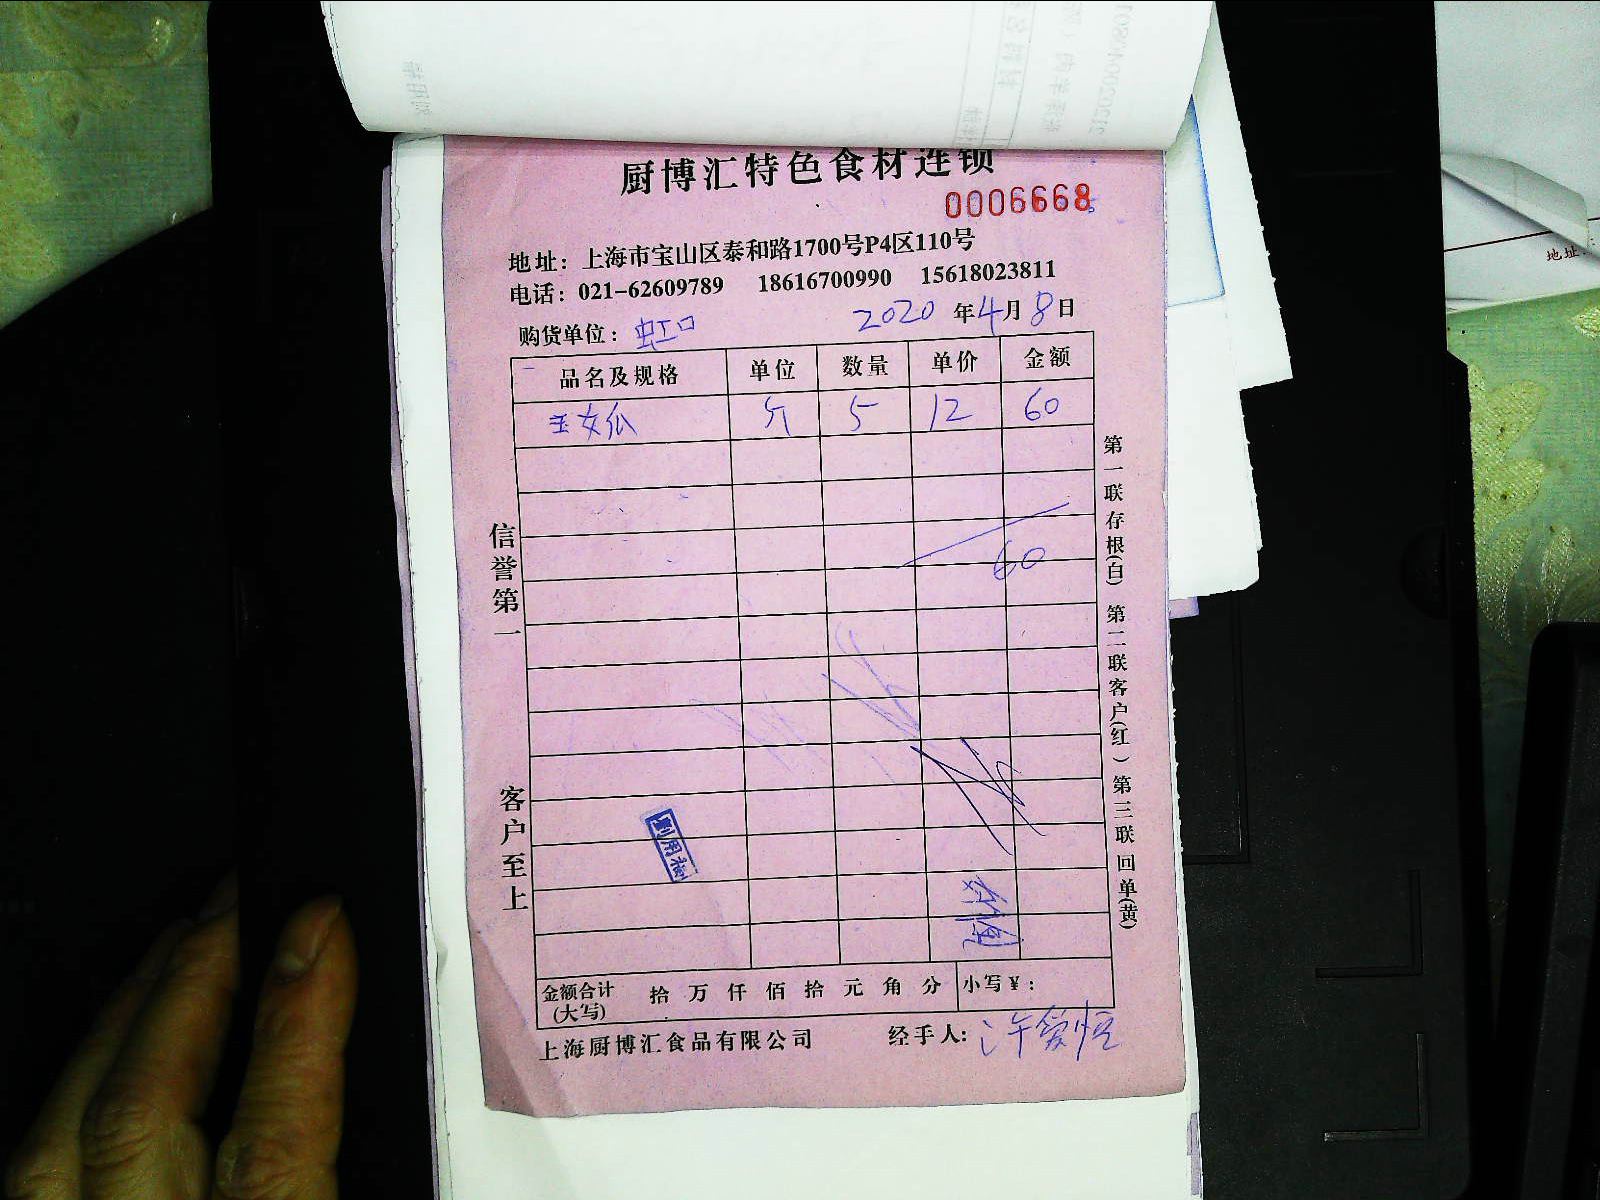 厨博汇特色食材连锁
0006668
地址：上海市宝山区泰和路1700号P4区110号
电话：021-62609789 18616700990 15618023811
购货单位：虹口 2020年4月8日
品名及规格 单位 数量 单价 金额
玉女瓜 斤 5 12 60
60
信誉第一
客户至上
第一联存根(白) 第二联客户(红) 第三联回单(黄)
金额合计(大写) 拾万仟佰拾元角分 小写￥：
上海厨博汇食品有限公司 经手人：许爱恒
地址：